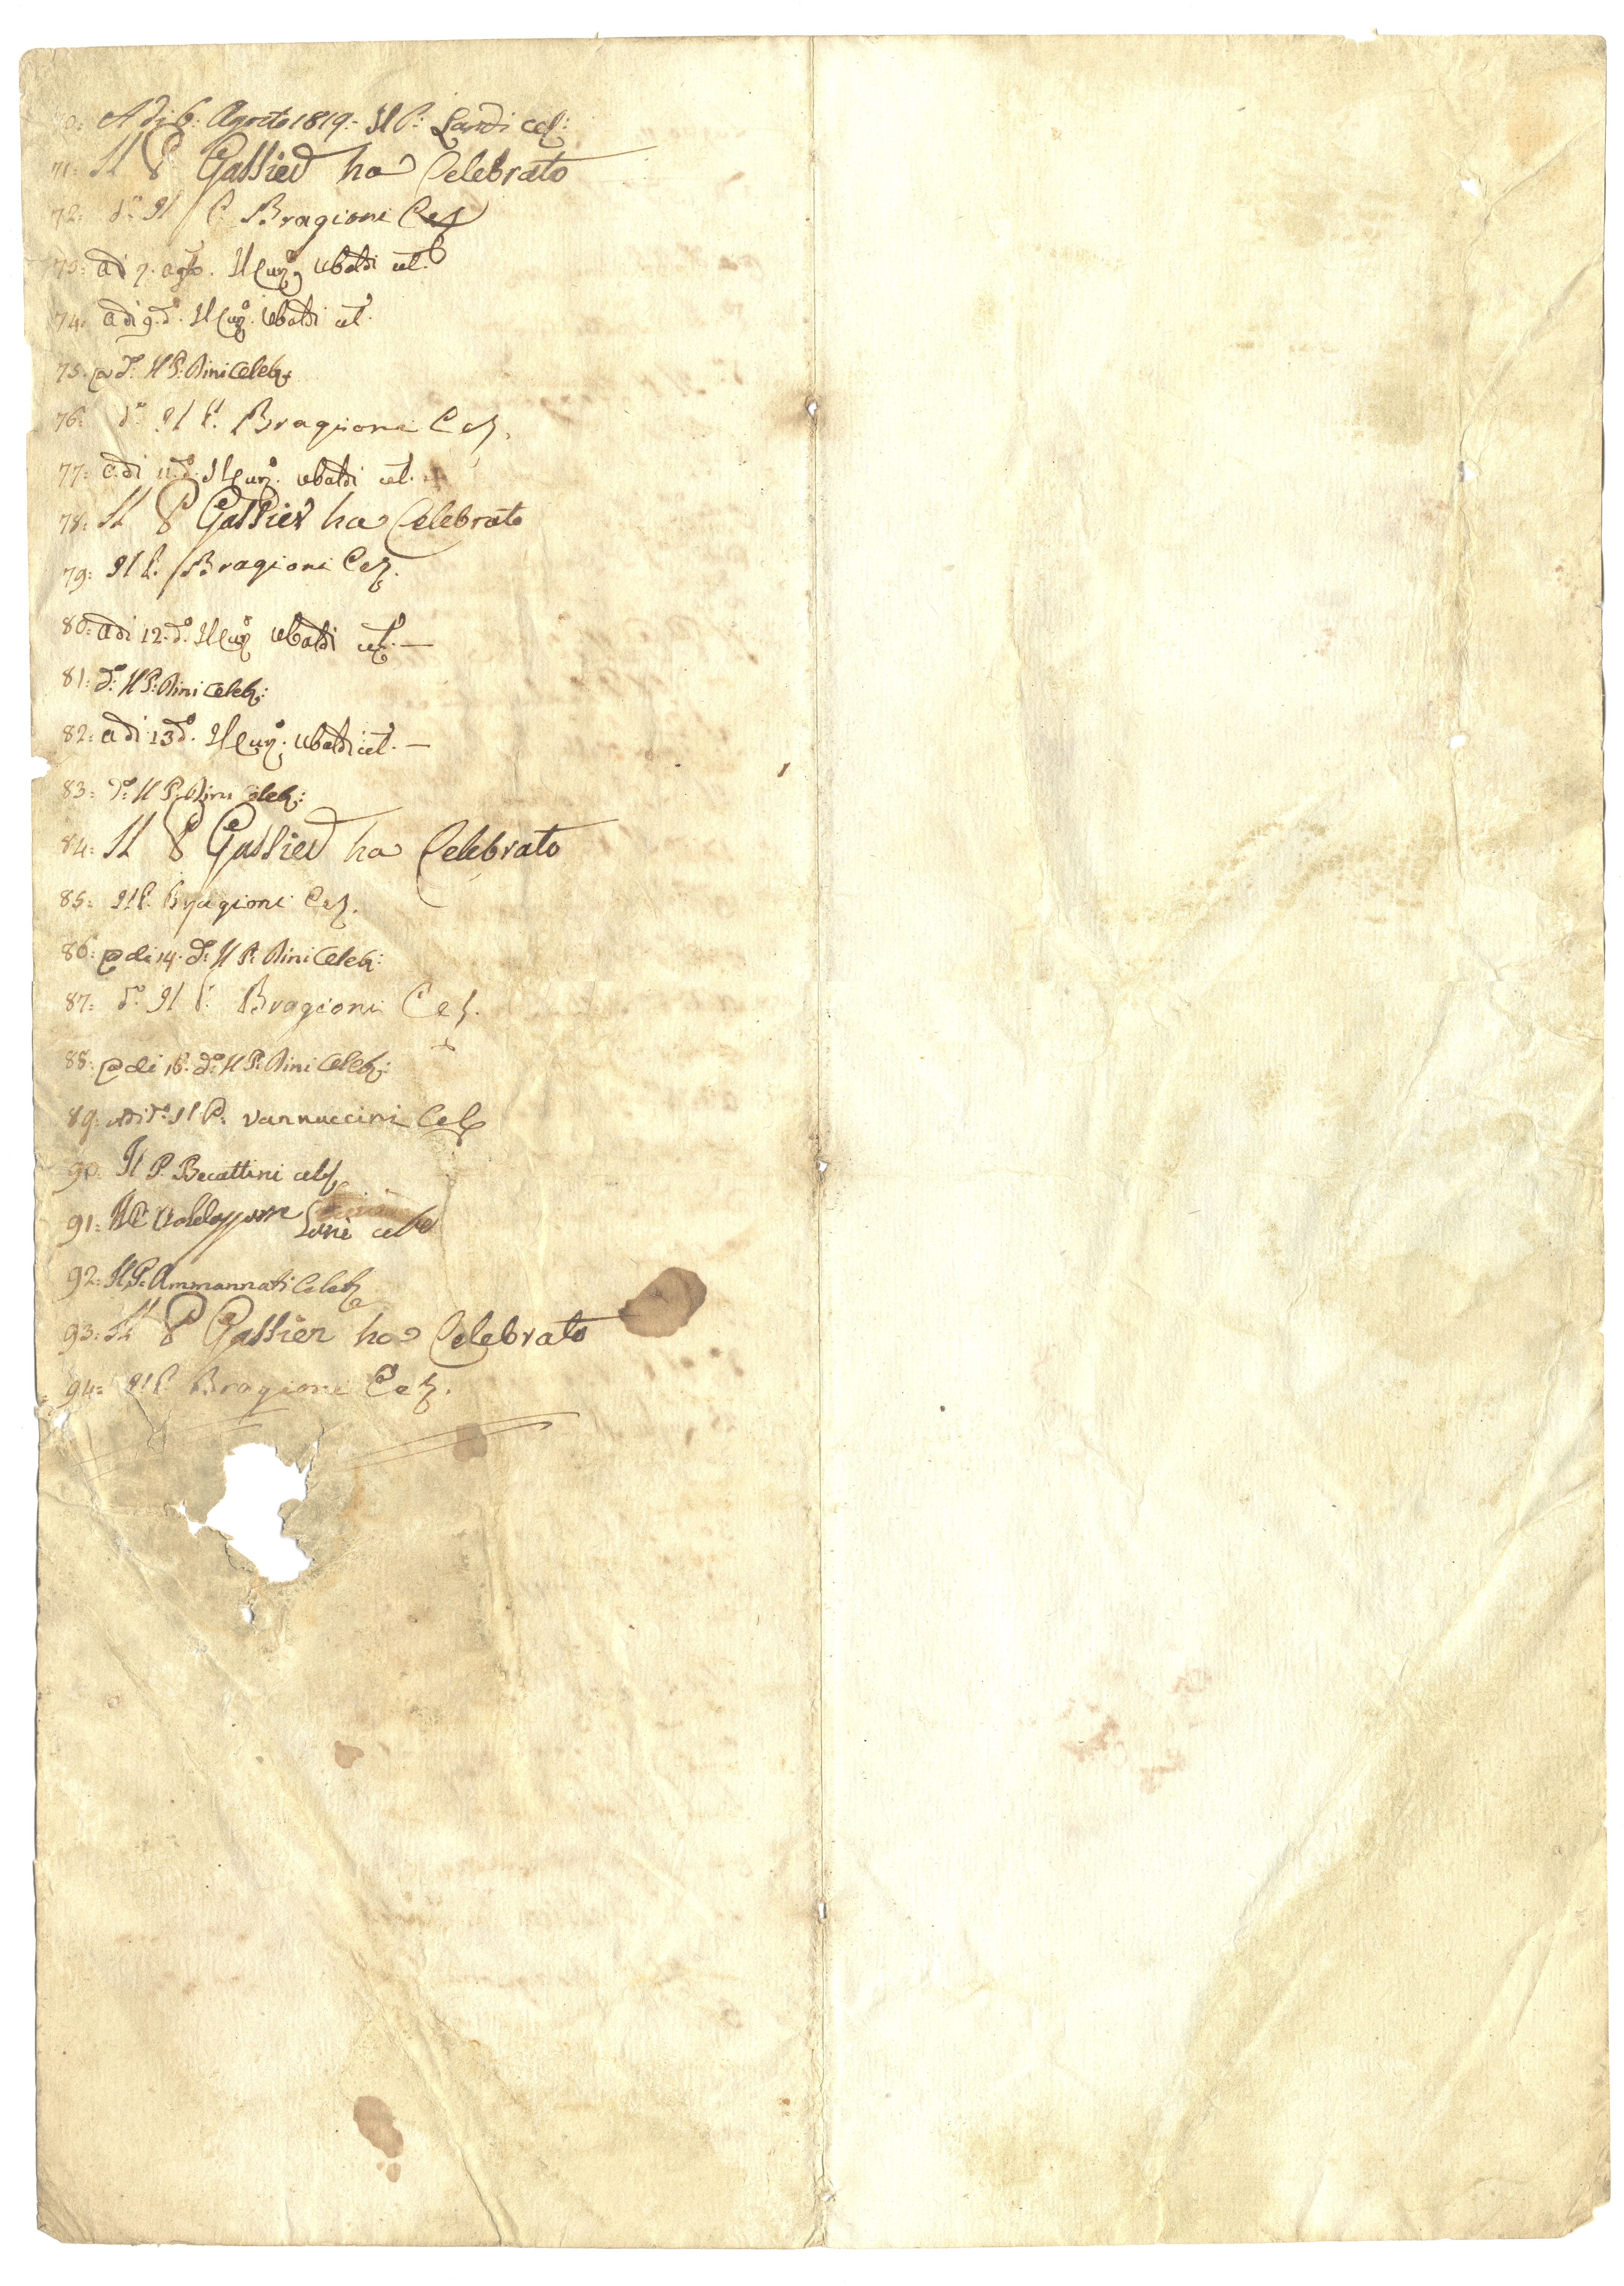 70: A dì 6: Agosto 1819:- Il P: Landi cel:
71: Il P Gassier ha Celebrato
72: do Il P. Bragioni Cel
73: adi 7. agto. Il Cur.o Ubaldi cel.
74: adi 9. do. Il Cur.o Ubaldi cel.
75. a do: Il P: Bini Celeb:
76: do Il P. Bragioni Cel.
77: adi 11. do. Il Cur.o Ubaldi cel.
78: Il P Gassier ha Celebrato
79: Il P. Bragioni Cel.
80: adi 12. do. Il Cur.o Ubaldi cel. —
81: do: Il P: Bini Celeb:
82: adi 13 do. Il Cur.o Ubaldi cel. —
83: do: Il P: Bini Celeb:
84: Il P Gassier ha Celebrato
85: Il P. Bragioni Cel.
86: a di 14. do: Il P: Bini Celeb:
87: do. Il P. Bragioni Cel.
88: a di 16. do: Il P: Bini Celeb:
89: Adi do: Il P: Vannuccini Cel
90: Il P. Becattini celb
91: Il P celb
92: Il P: Ammannati Celeb
93: Il P Gassier ha Celebrato
94: Il P Bragioni Cel.